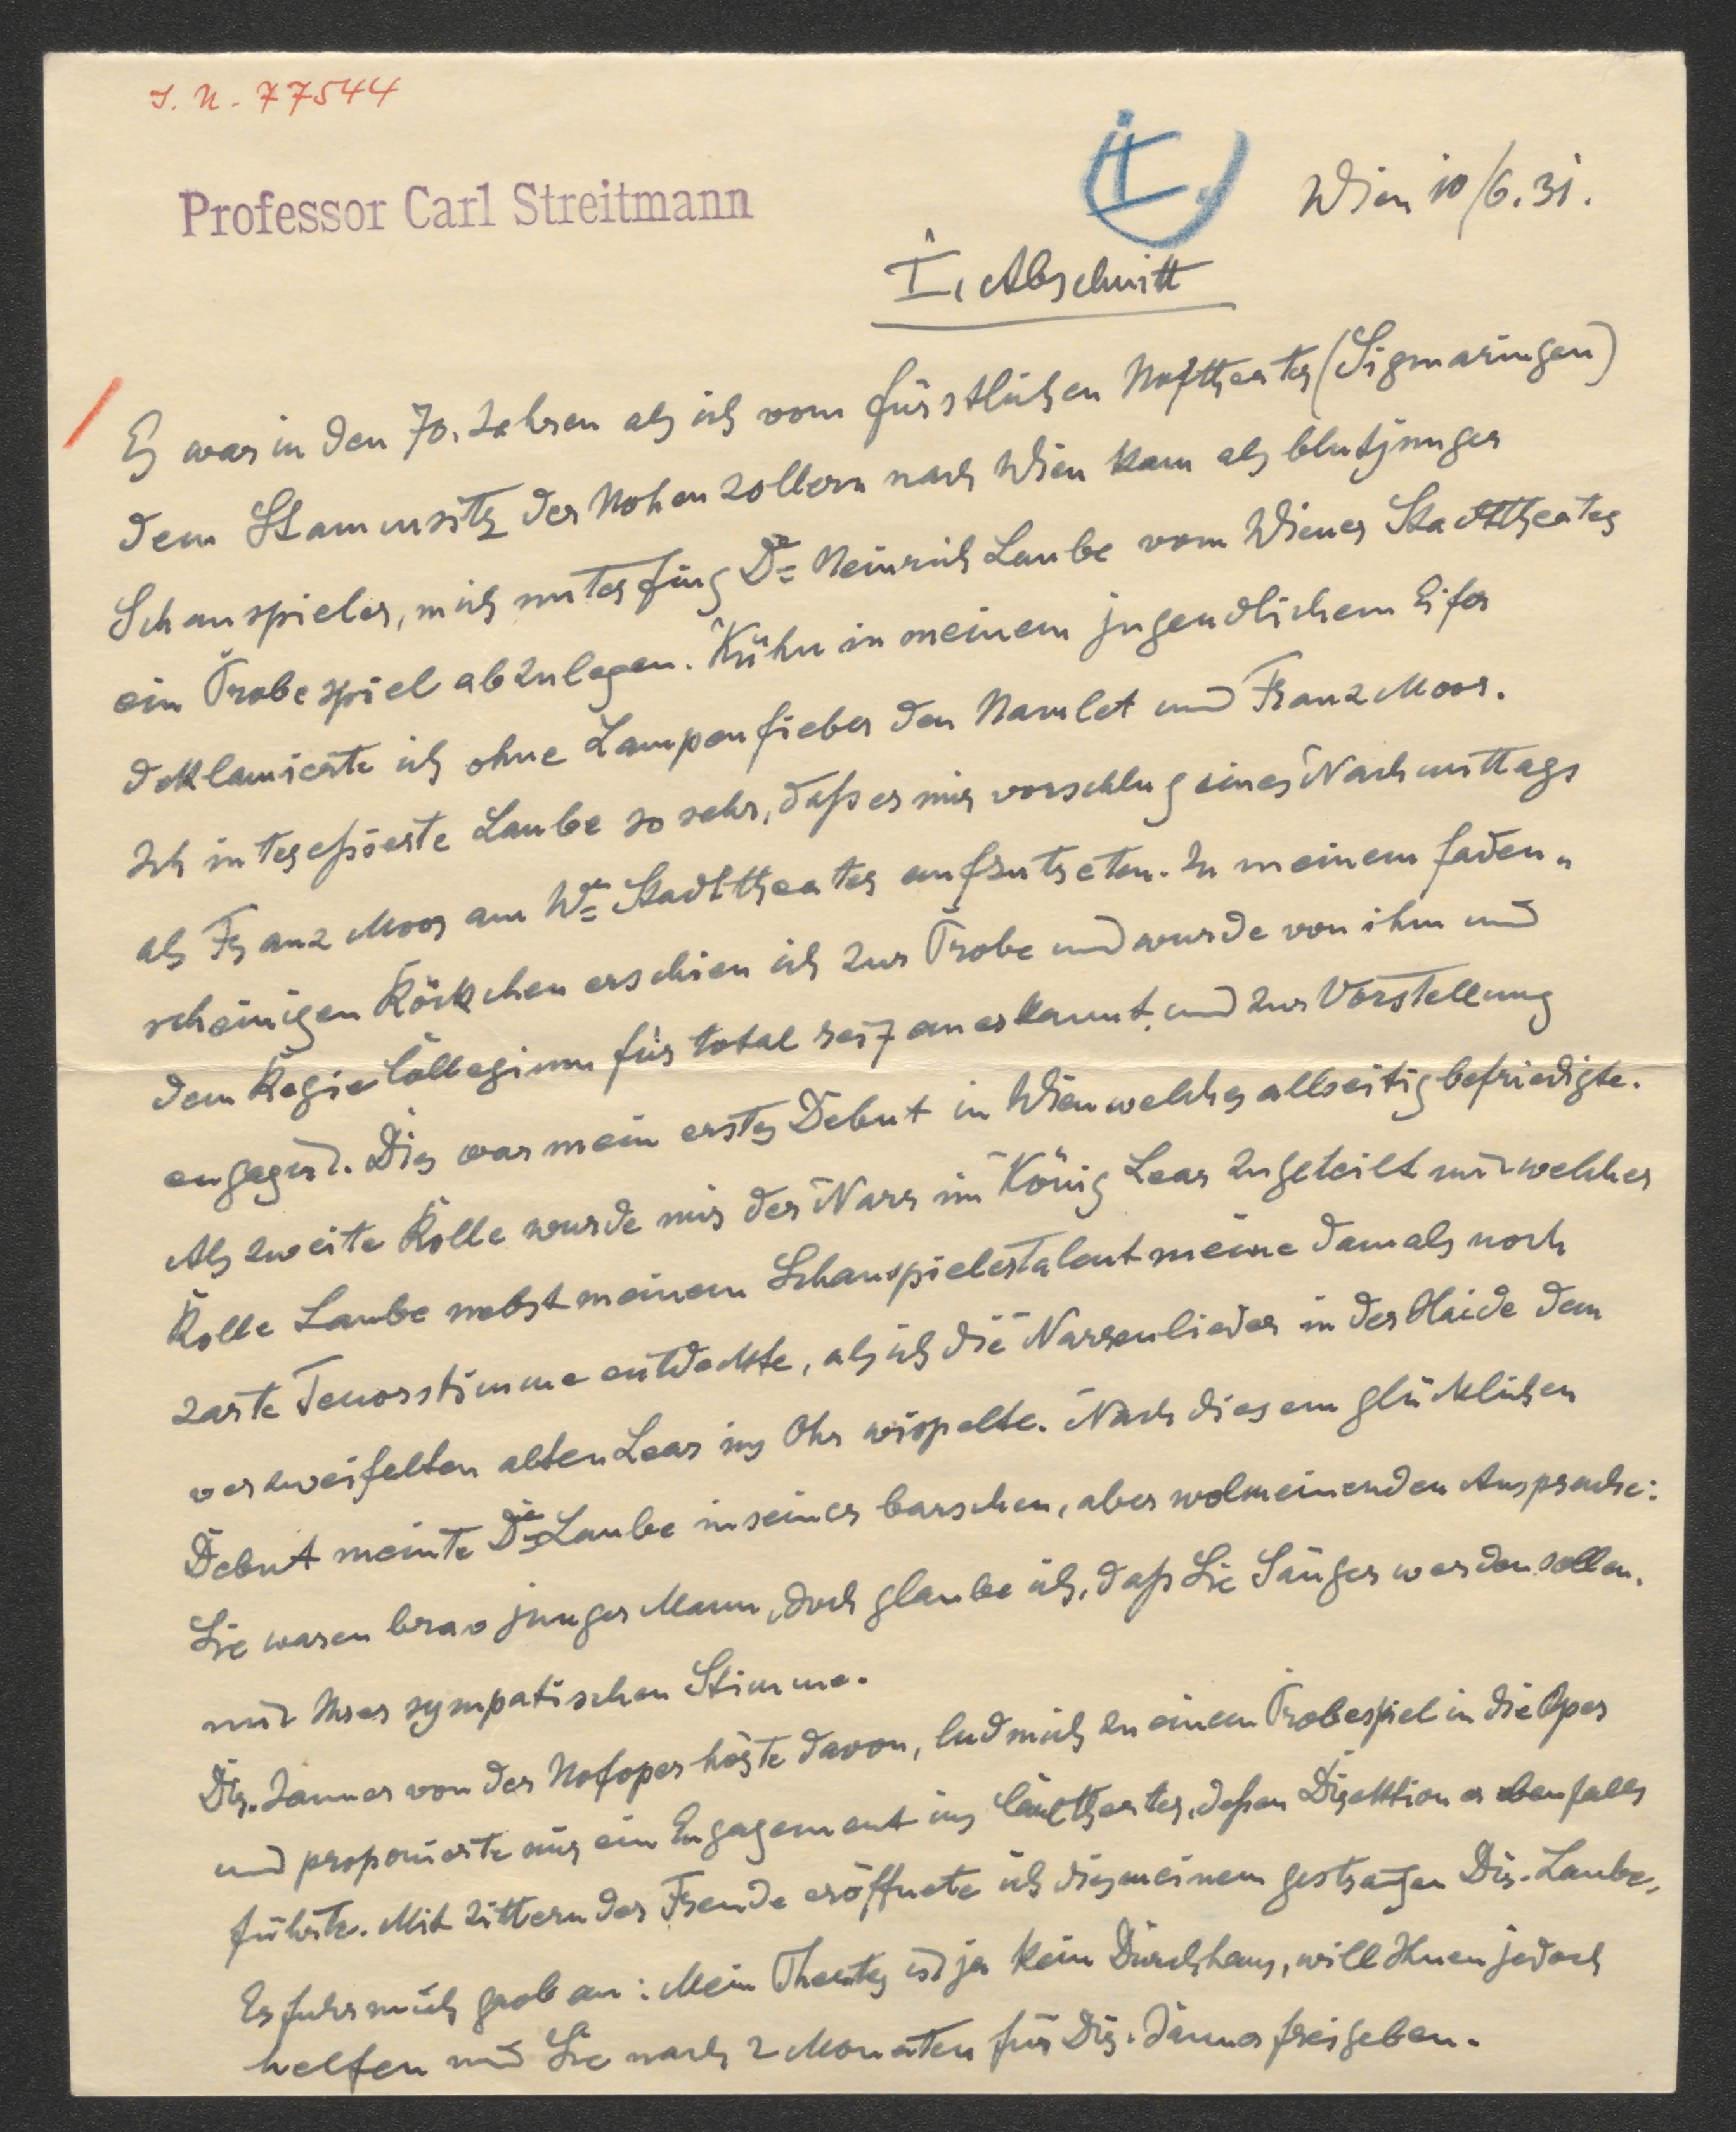 I. N. 77544
Professor Carl Streitmann
Wien 10/6.31.
I. Abschnitt
Es war in den 70. Jahren als ich vom fürstlichen Hoftheater (Sigmaringen)
dem Stammsitz der Hohenzollern nach Wien kam als blutjunger
Schauspieler, mich unterfing Dr Heinrich Laube vom Wiener Stadttheater
ein Probespiel abzulegen. Kühn in meinem jugendlichem Eifer
deklamierte ich ohne Lampenfieber den Hamlet und Franz Moor.
Ich intereßierte Laube so sehr, daß er mir vorschlug eines Nachmittags
als Franz Moor am Wr Stadttheater aufzutreten. In meinem faden„
scheinigen Röckchen erschien ich zur Probe und wurde von ihm und
dem Regie Collegium für total reif anerkannt, und zur Vorstellung
engagirt. Dies war mein erstes Debut in Wien welches allseitig befriedigte.
Als zweite Rolle wurde mir der Narr im König Lear zugeteilt mit welcher
Rolle Laube nebst meinem Schauspielertalent meine damals noch
zarte Tenorstimme entdeckte, als ich die Narrenlieder in der Haide dem
verzweifelten alten Lear ins Ohr wispelte. Nach diesem glücklichen
Debut meinte Dr Laube in seiner barschen, aber wolmeinenden Ansprache:
Sie waren brav junger Mann, doch glaube ich, daß Sie Sänger werden sollen,
mit Ihrer sympatischen Stimme.
Dir. Jauner von der Hofoper hörte davon, lud mich zu einem Probespiel in die Oper
und proponierte mir ein Engagement ins Carltheater, deßen Direktion er ebenfalls
führte. Mit Zittern der Freude eröffnete ich dies meinem gestrengen Dir. Laube,
Er fuhr mich grob an: Mein Theater ist ja kein Durchhaus, will Ihnen jedoch
helfen und Sie nach 2 Monaten für Dir. Jauner freigeben.